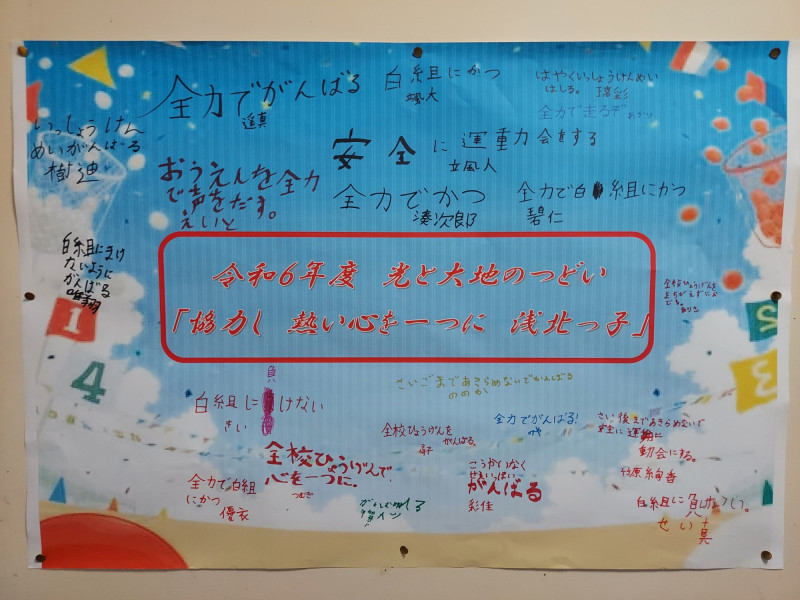 全力でがんばる
遥真
白組にかつ
颯大
はやくいっしょうけんめい
はしる。 瑛彩
全力で走るぞ あさり
いっしょうけん
めいがんばる
樹迪
安全に運動会をする
立風人
おうえんを全力
で声をだす。
えいと
全力でかつ
湊次郎
全力で白組にかつ
碧仁
白組にまけ
ないように
がんばる
唯翔
令和6年度 光と大地のつどい
「協力し 熱い心を一つに 浅北っ子」
1
4
5
3
全校ひょうげんを
さいごまであきらめないでがんばる
ののか
白組に負けない
さい
全校ひょうげんを
がんばる。
全力でがんばる!
さい後まであきらめないで
安全に運動
動会にする。
全校ひょうげんで
心を一つに。
つむぎ
こうかいなく
せいいっぱい
がんばる
彩佳
全力で白組
にかつ
優衣
白組に負けない。
せい真